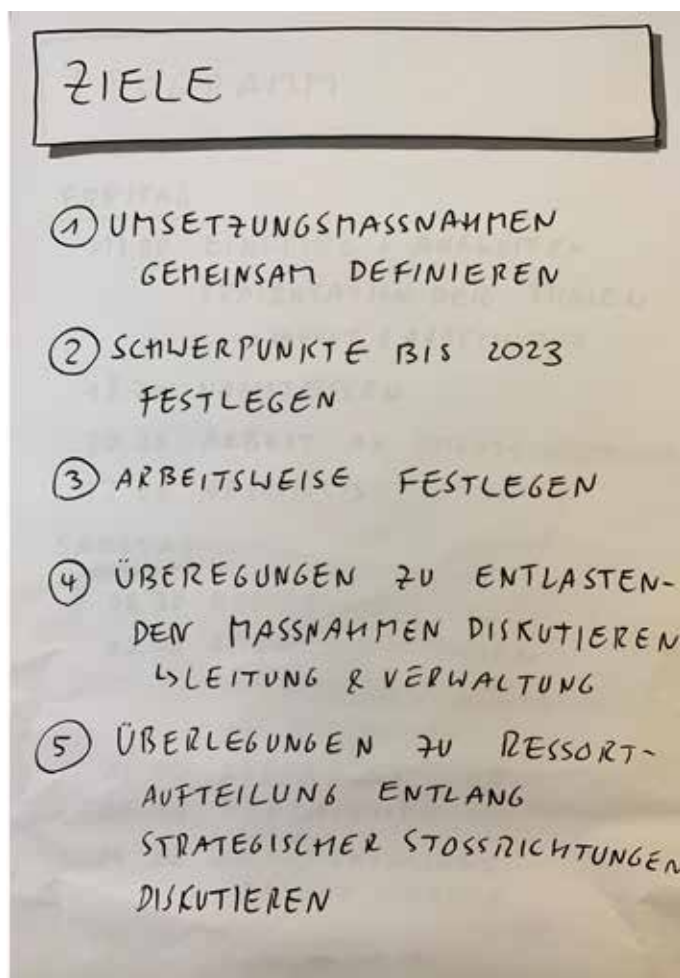 ZIELE
① UMSETZUNGSMASSNAHMEN
GEMEINSAM DEFINIEREN
② SCHWERPUNKTE BIS 2023
FESTLEGEN
③ ARBEITSWEISE FESTLEGEN
④ ÜBEREGUNGEN ZU ENTLASTEN-
DEN MASSNAHMEN DISKUTIEREN
↳ LEITUNG & VERWALTUNG
⑤ ÜBERLEGUNGEN ZU RESSORT-
AUFTEILUNG ENTLANG
STRATEGISCHER STOSSRICHTUNGEN
DISKUTIEREN